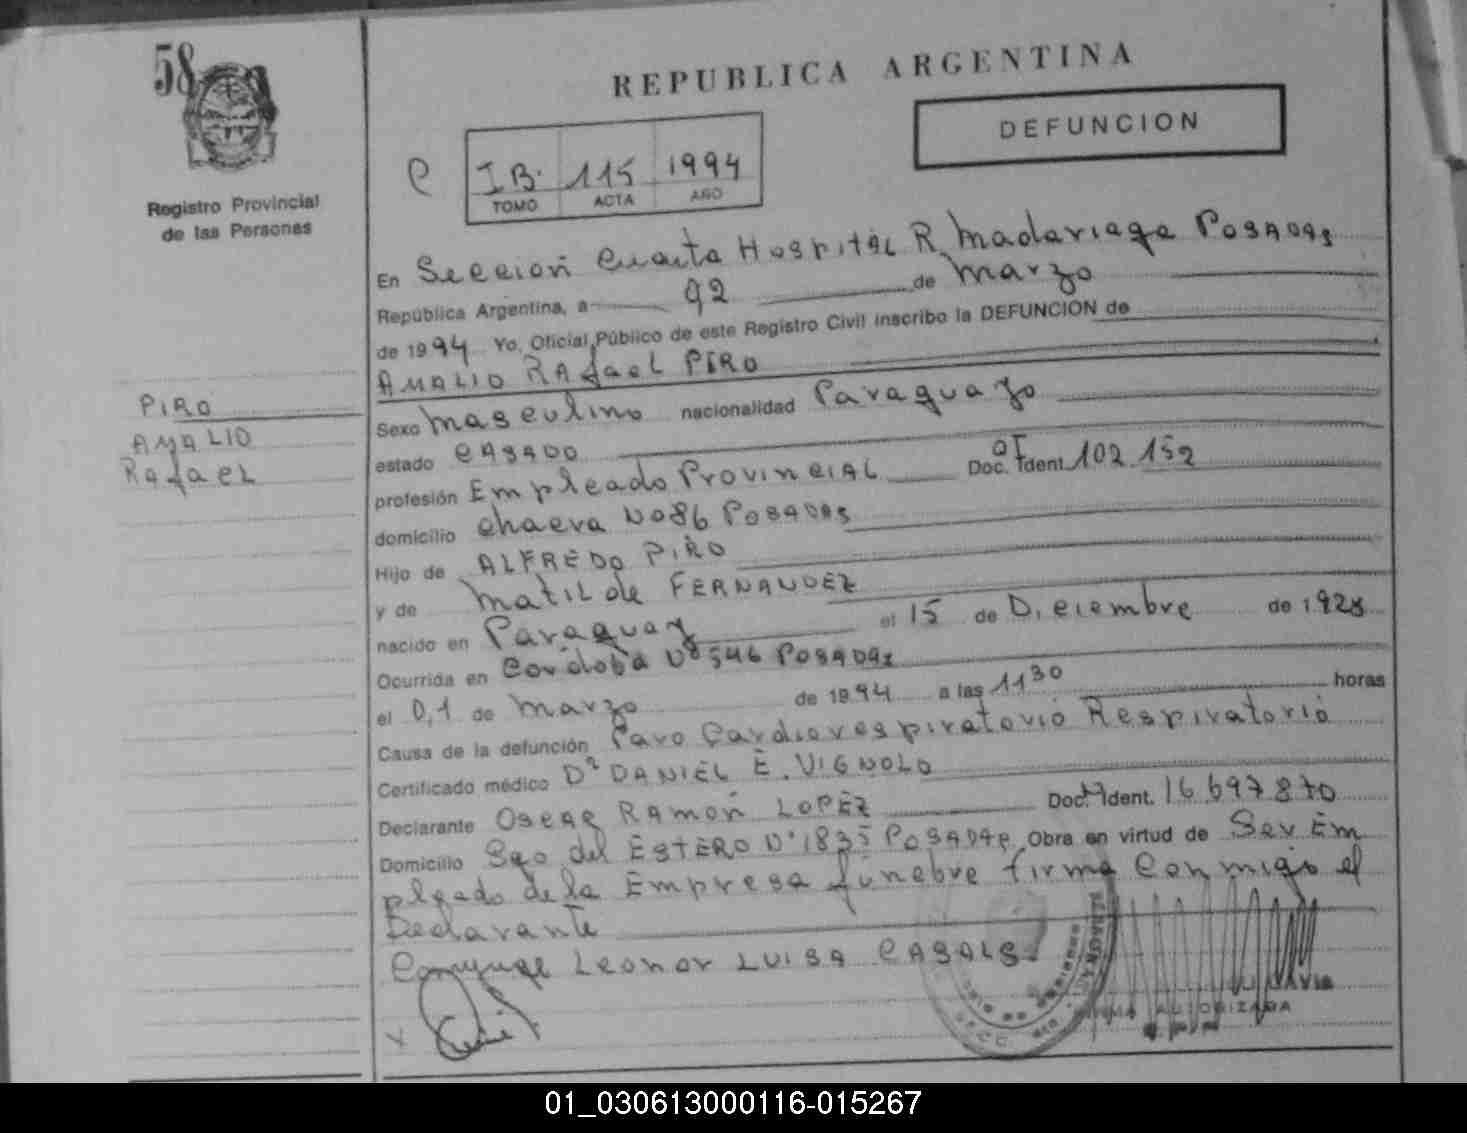 58
REPUBLICA ARGENTINA
DEFUNCION
Registro Provincial
de las Personas
C
I B. 115 1994
TOMO ACTA AÑO
En Seccion Cuarta Hospital R Madariaga POSADAS
República Argentina, a 02 de Marzo
de 1994 Yo, Oficial Público de este Registro Civil inscribo la DEFUNCION de
AMALIO RAfaeL PIRO
PIRO
AMALIO
RafaeL
Sexo Masculino nacionalidad Paraguayo
estado CASADO
profesión Empleado Provincial Doc. Ident. 102.152
domicilio Chacra Nº 86 POSADAS
Hijo de ALFREDO PIRO
y de MatILde FERNANDEZ
nacido en Paraguay el 15 de Diciembre de 1928
Ocurrida en Cordoba Nº 546 POSADAS
el 0,1 de Marzo de 1994 a las 11 30 horas
Causa de la defunción Paro Cardiorespiratorio Respiratorio
Certificado médico Dr DANIEL E. VIGNOLO
Declarante Oscar RAMON LOPEZ Doc. Ident. 16 697 870
Domicilio Sgo del ESTERO Nº 1835 POSADAS Obra en virtud de Ser Em
pleado de la Empresa fúnebre firma Conmigo el
Declarante
Conyuge Leonor LUISA CASALS
FIRMA AUTORIZADA
01_030613000116-015267